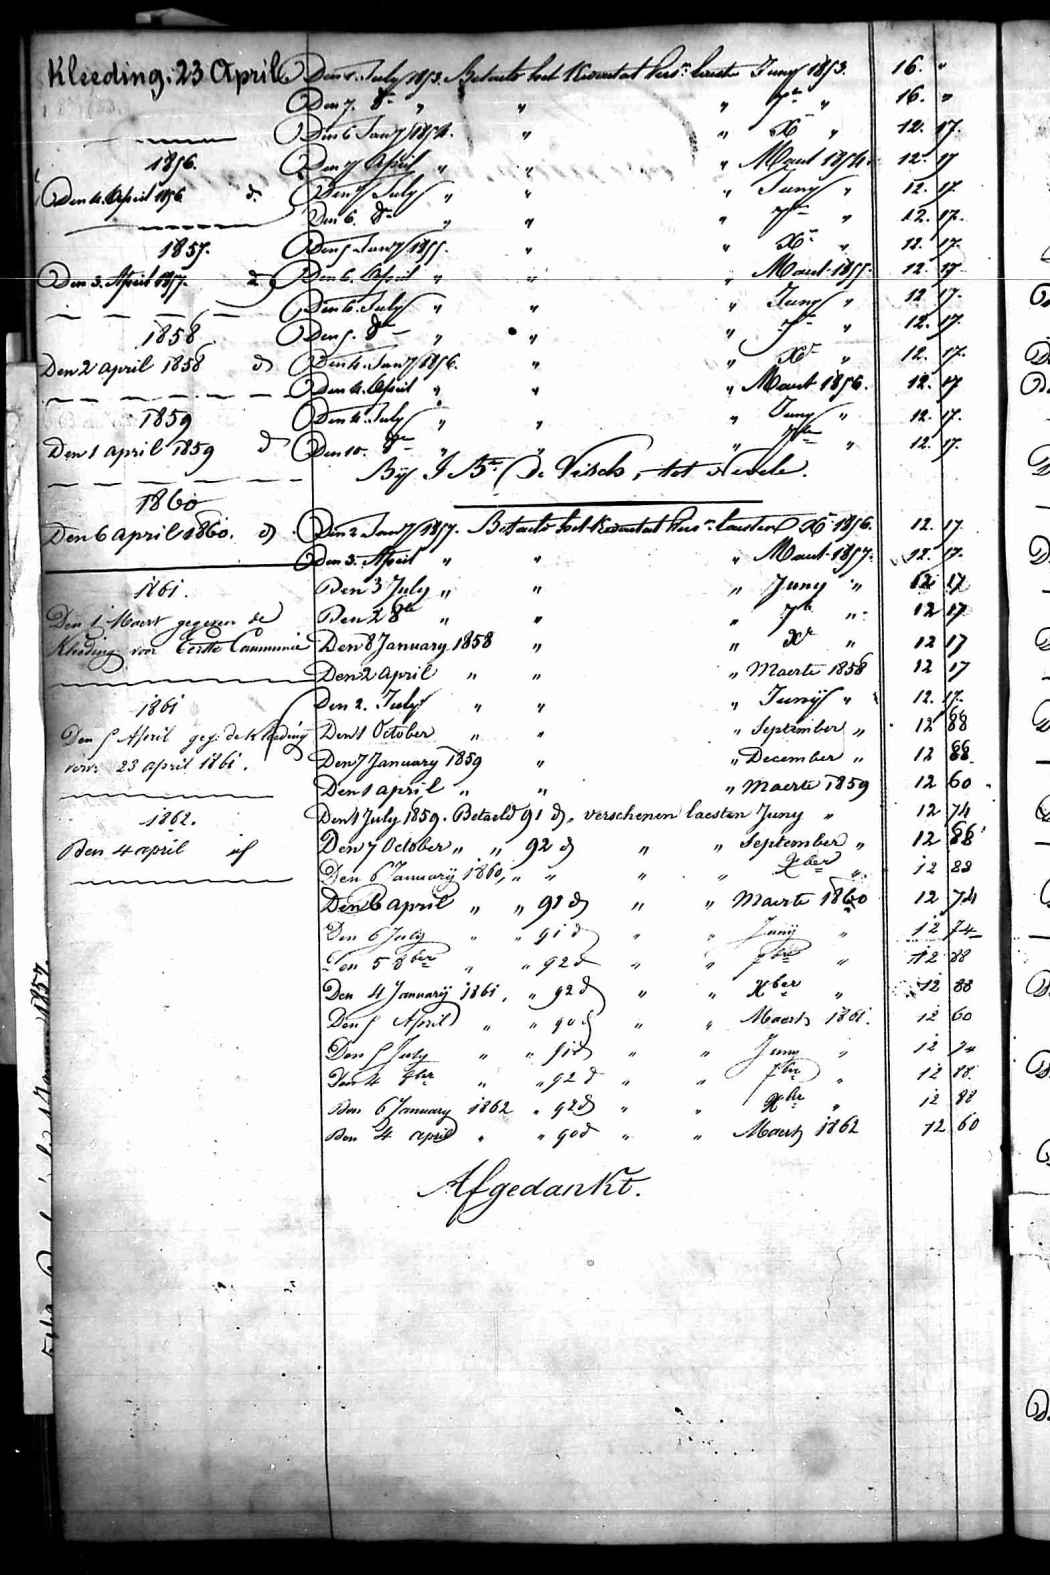 Kleeding. 23 April
1856.
Den 4. April 1856 d°
1857.
Den 3. April 1857. d°
1858
Den 2 april 1858 d
1859
Den 1 april 1859 d
1860
Den 6 april 1860. d
1861.
Den 1 Maert gegeven de
Kleeding voor Eerste Communie
1861
Den 5 April geg. de kleeding
voor 23 april 1861.
1862.
Den 4 april
Den 1. July 1853. Betaelt het Kwartael Juny 1853. 16. "
Den 7. 8re " " " 7re " 16. "
Den 6 Janry 1854. " " Xre " 12. 17.
Den 7 April " " " Maert 1854. 12. 17
Den 7 July " " " Juny " 12. 17.
Den 6. 8re " " " 7re " 12. 17.
Den 5 Janry 1855. " " Xre " 12. 17.
Den 6. April " " " Maert 1855. 12. 17
Den 6. July " " " Juny " 12. 17.
Den 5. 8re " " " 7re " 12. 17.
Den 4. Janry 1856. " " Xre " 12. 17.
Den 4. April " " " Maert 1856. 12. 17
Den 4. July " " " Juny " 12. 17.
Den 10. 8re " " " 7re " 12. 17.
Bij J. Bte De Visch, tot Nevele.
Den 2 Janry 1857. Betaelt het Kwartael laesten Xre 1856. 12. 17.
Den 3. April " " " Maert 1857. 12. 17.
Den 3 July " " " Juny " 12 17
Den 2 8re " " " 7re " 12 17
Den 8 January 1858 " " Xr " 12 17
Den 2 april " " " Maerte 1858 12 17
Den 2. July " " " Junij " 12. 17.
Den 1 October " " " September " 12 88
Den 7 January 1859 " " December " 12 88
Den 1 april " " " Maerte 1859 12 60
Den 1 July 1859. Betaeld 91 d. verschenen laesten Juny " 12 74
Den 7 October " " 92 d " " September " 12 88
Den 6 Januarij 1860, " " " " Xber " 12 88
Den 6 april " " 91 d " " Maerte 1860 12 74
Den 6 July " " 91 d " " Junij " 12 74
Den 5 8ber " " 92 d " " 7bre " 12 88
Den 4 Januarij 1861, " 92 d " " Xber " 12 88
Den 5 April " " 90 d " " Maert 1861. 12 60
Den 5 July " " 91 d " " Juny " 12 74
Den 4 8br " " 92 d " " 7br " 12 88.
Den 6 January 1862 " 92 d " " Xbr " 12 88
Den 4 april " " 90 d " " Maert 1862 12 60
Afgedankt.